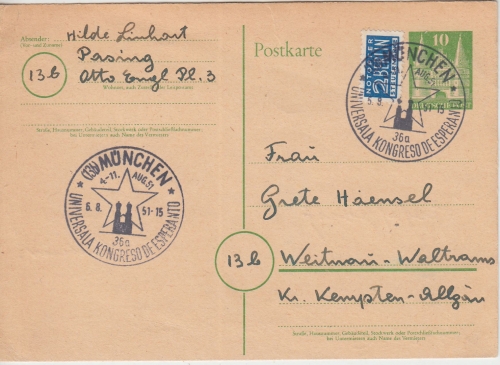 Absender:
Hilde Linhart
Pasing
13b
Otto Engl. Pl. 3
Wohnort, auch Zustell- oder Leitpostamt
Straße, Hausnummer, Gebäudeteil, Stockwerk oder Postschließfachnummer;
bei Untermietern auch Name des Vermieters
(13b) MÜNCHEN
4.-11. AUG. 51
6. 8. 51-15
36a
UNIVERSALA KONGRESO DE ESPERANTO
Postkarte
NOTOPFER
2 BERLIN
STEUERMARKE
10
MÜNCHEN
AUG. 51
36a
UNIVERSALA KONGRESO DE ESPERANTO
Frau
Grete Haensel
13b
Weitnau-Waltrams
Kr. Kempten-Allgäu
Straße, Hausnummer, Gebäudeteil, Stockwerk oder Postschließfachnummer;
bei Untermietern auch Name des Vermieters